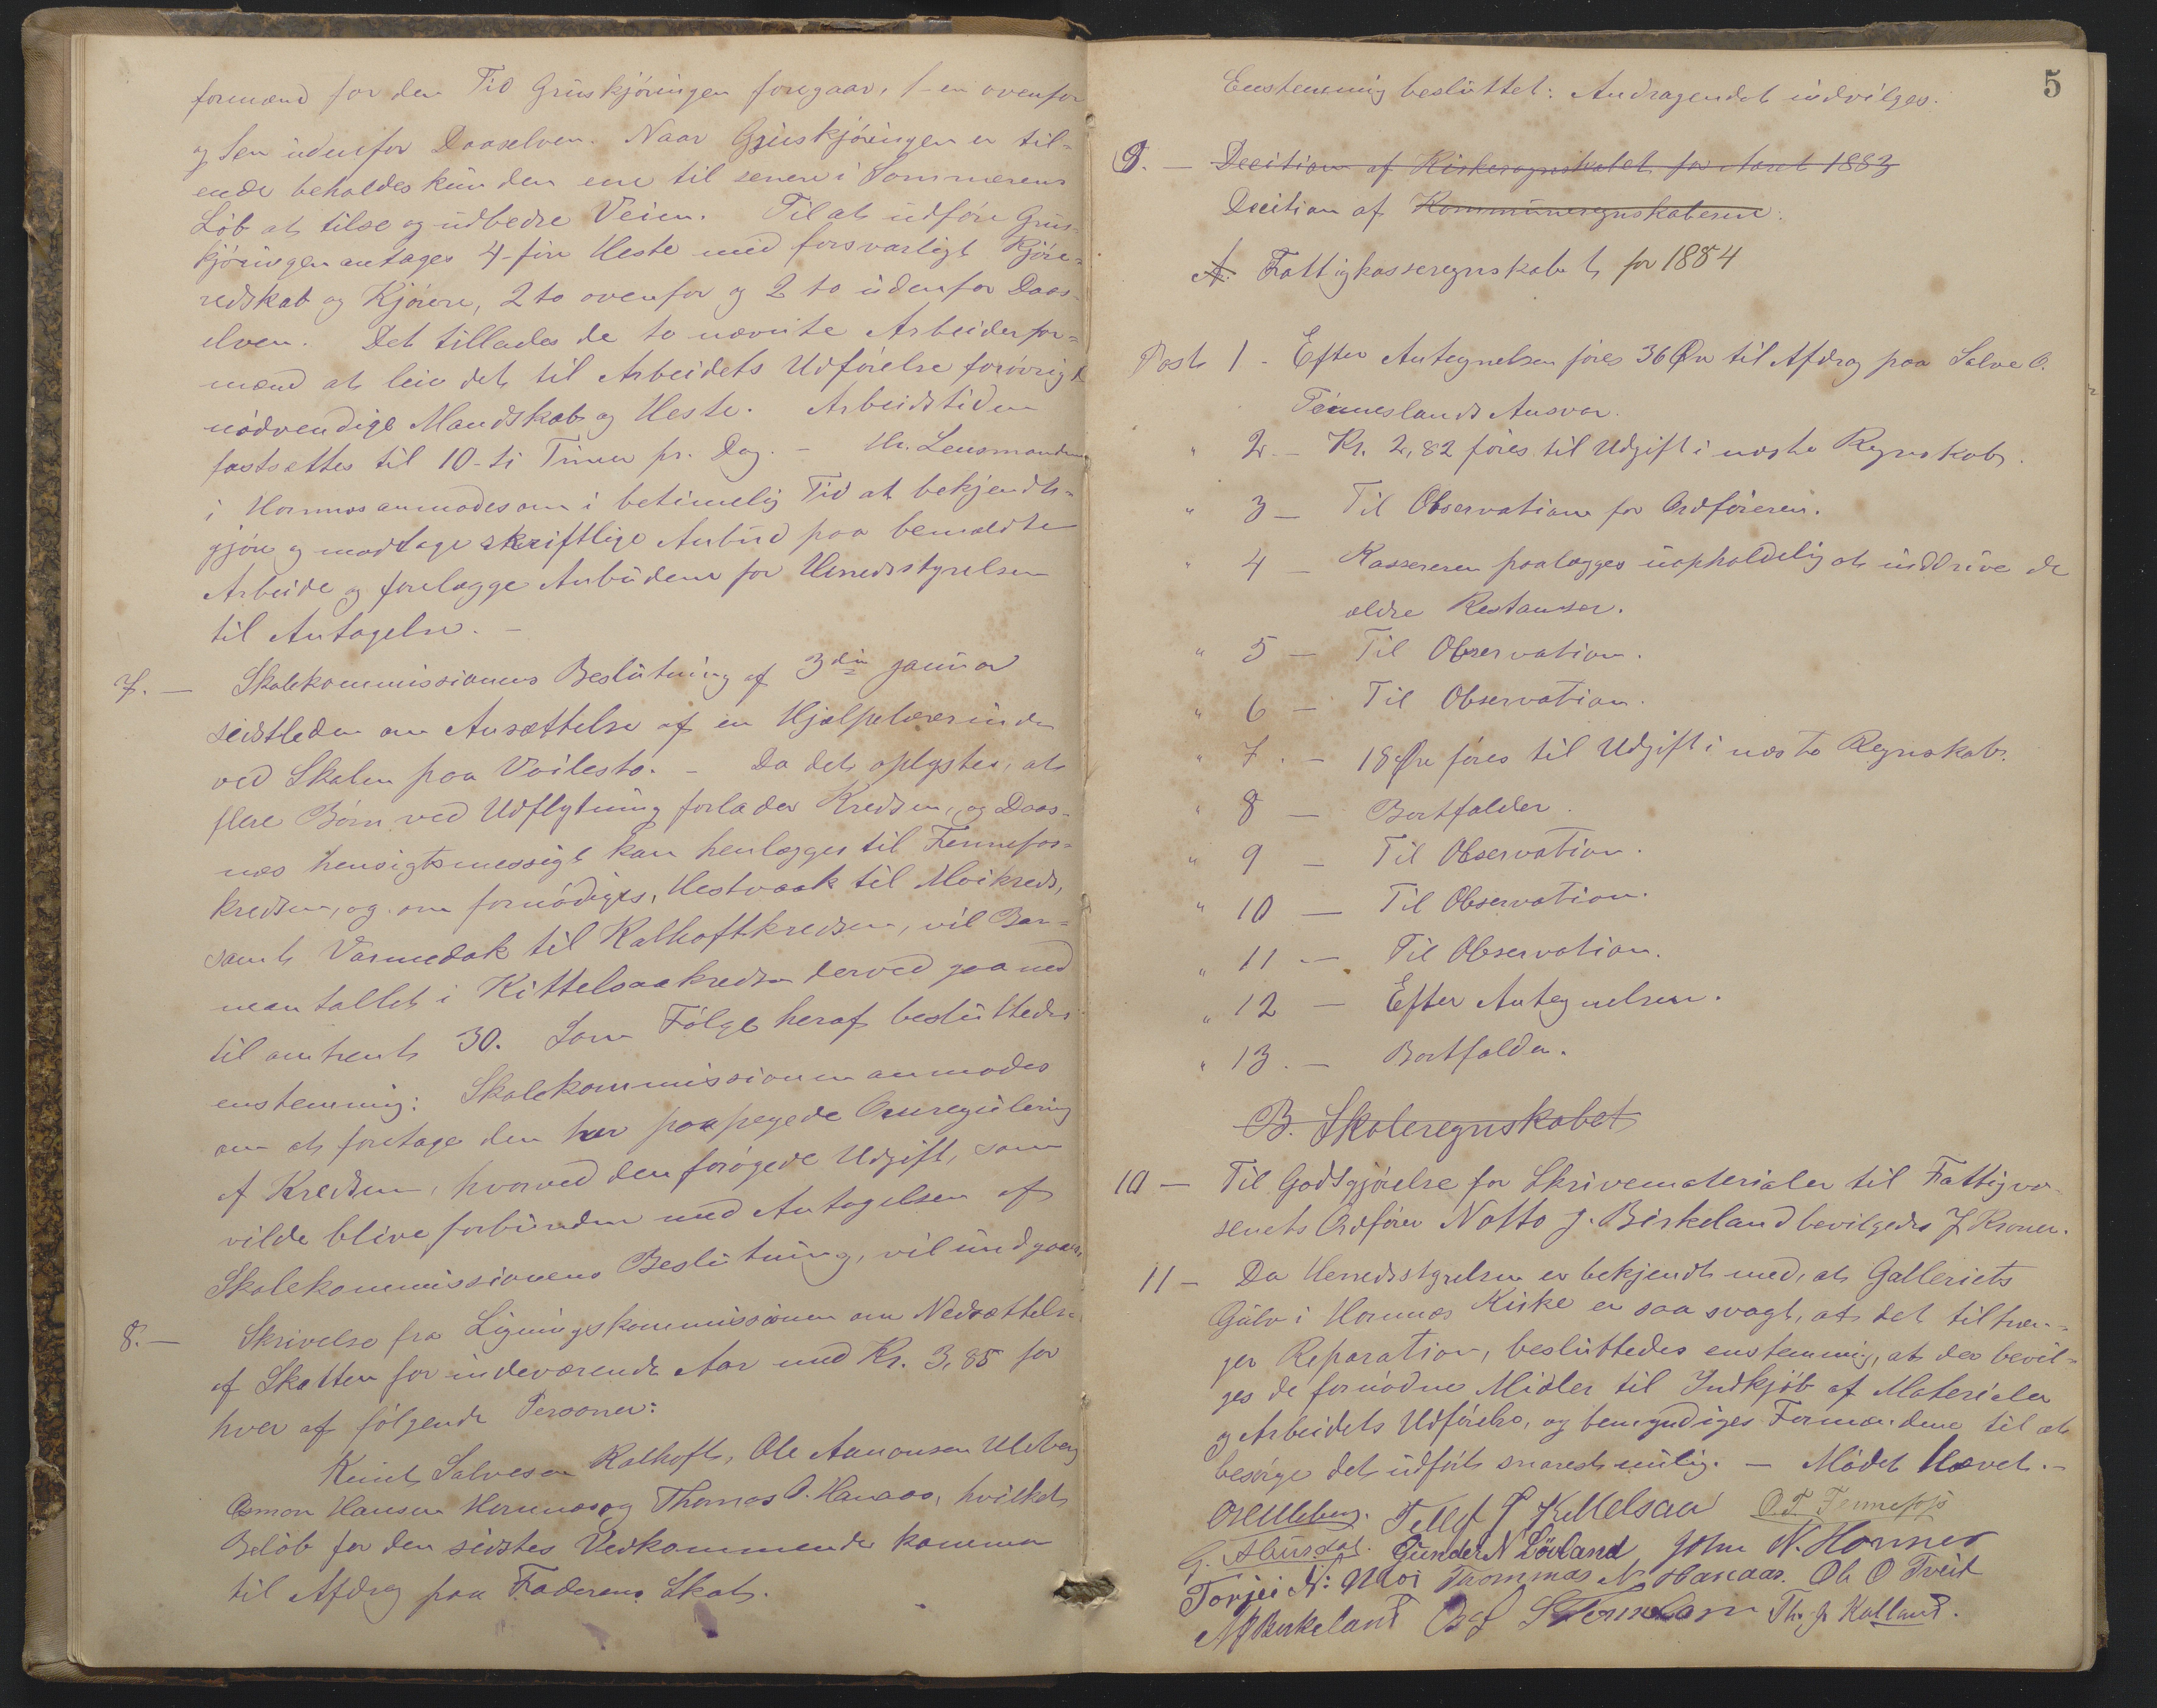 formænd for den Tid Gruskjøringen foregaar, 1-en ovenfor
og 1en udenfor Daaselven. Naar Gruskjøringen er til-
ende beholdes kun den ene til senere i Sommerens
Løb at tilse og udbedre Veien. Til at udføre Grus-
kjøringen antages 4-fire Heste med forsvarligt Kjøre-
redskab og Kjørere, 2 to ovenfor og 2 to udenfor Daas-
elven. Det tillades de to nævnte Arbeiderfor-
mænd at leie det til Arbeidets Udførelse forøvrigt
nødvendige Mandskab og Heste. Arbeidstiden
fastsættes til 10-ti Timer pr. Dag. – Hr. Lensmanden
i Hornnes anmodes om i betimelig Tid at bekjendt-
gjøre og modtage skriftlige Anbud paa bemeldte
Arbeide og forelægge Anbudene for Herredsstyrelsen
til Antagelse. –
7. – Skolekommissionens Beslutning af 3die Januar
sidstleden om Ansættelse af en Hjælpelærerinde
ved Skolen paa Voilesto. – Da det oplystes, at
flere Børn ved Udflytning forlader Kredsen, og Daas-
nes hensigtsmessigt kan henlægges til Fennefos-
kredsen, og om fornødiges, Hestvaak til Moikreds,
samt Varmedak til Kalhoftkredsen, vil Bar-
neantallet i Kittelsaakredsen derved gaa ned
til omtrent 30. Som Følge heraf besluttedes
enstemmig: Skolekommissionen anmodes
om at foretage den her paapegede Omregulering
af Kredsen, hvorved den forøgede Udgift, som
vilde blive forbunden med Antagelsen af
Skolekommissionens Beslutning, vil undgaaes.
8. – Skrivelse fra Ligningskommissionen om Nedsættelse
af Skatten for indeværende Aar med Kr. 3,85 for
hver af følgende Personer:
Knut Salvesen Kalhoft, Ole Aanonsen Uleberg
Osmon Hansen Hornnes og Thomas O. Hanaas, hvilket
Beløb for den sidstes Vedkommende kommer
til Afdrag paa Faderens Skat.
5
Enstemmig besluttet: Andragendet indvilges.
9. – Decition af Kirkeregnskabet for Aaret 1883
Decition af Kommuneregnskaberne:
A. Fattigkasseregnskabet for 1884
Post 1 - Efter Antegnelsen føres 36 Øre til Afdrag paa Salve O.
Tønneslands Ansvar.
" 2. – Kr. 2,82 føres til Udgift i næste Regnskab.
" 3 – Til Observation for Ordføreren.
" 4 – Kassereren paalægges uopholdelig at inddrive de
ældre Restanser.
" 5 – Til Observation.
" 6 – Til Observation.
" 7. – 18 Øre føres til Udgift i næste Regnskab.
" 8 – Bortfalder.
" 9 – Til Observation.
" 10 – Til Observation.
" 11 – Til Observation.
" 12 – Efter Antegnelsen.
" 13. – Bortfalder.
B. Skoleregnskabet
10 – Til Godtgjørelse for Skrivematerialer til Fattigvæ-
senets Ordfører Notto J. Birkeland bevilgedes 7 Kroner.
11 – Da Herredsstyrelsen er bekjendt med, at Galleriets
Gulv i Hornnes Kirke er saa svagt, at det tiltræn-
ger Reparation, besluttedes enstemmig, at der bevil-
ges de fornødne Midler til Indkjøb af Materialer
og Arbeidets Udførelse, og bemyndiges Formændene til at
besørge det udført snarest mulig. – Mødet Hævet. –
Uleberg. Tellef T Kittelsaa O.T. Fennefos
G. Abusdal. Gunder N Løvland John N. Hornnes
Torjei N: Moi Thommas N Hanaas. Ole O Tveit
NJ Berkeland Th. J. Kalland.